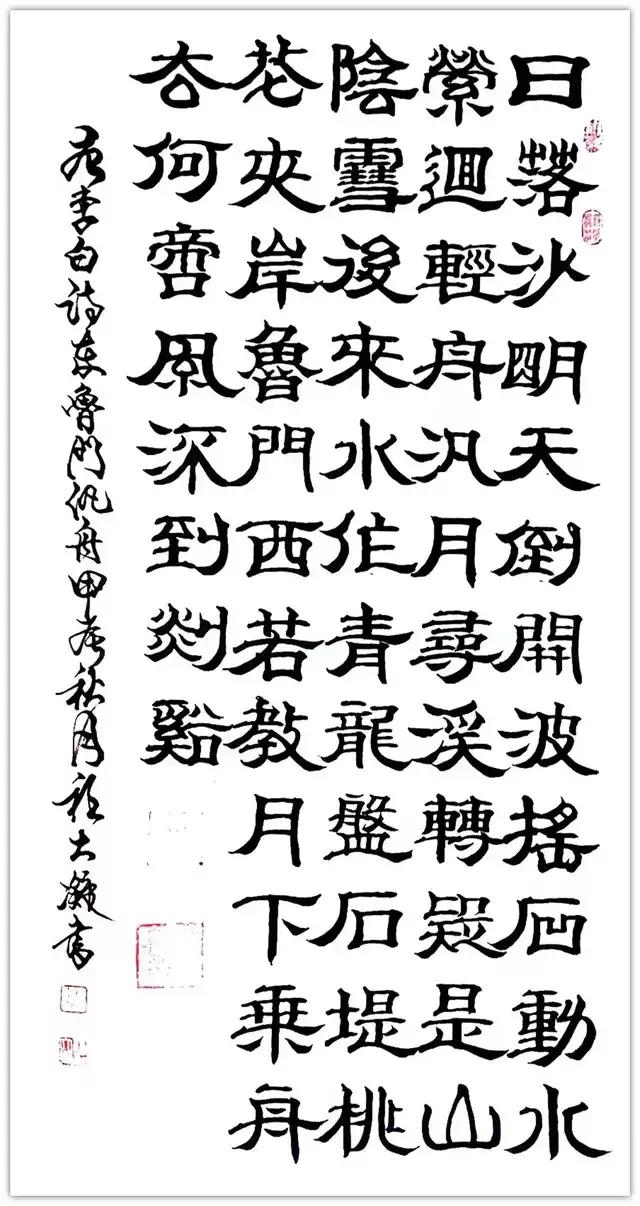 日落沙明天倒開波搖石動水
縈迴輕舟汎月尋溪轉疑是山
陰雪後來水作青龍盤石堤桃
花夾岸魯門西若教月下乘舟
去何啻風流到剡谿
李白诗东魯门汎舟甲秋月大书